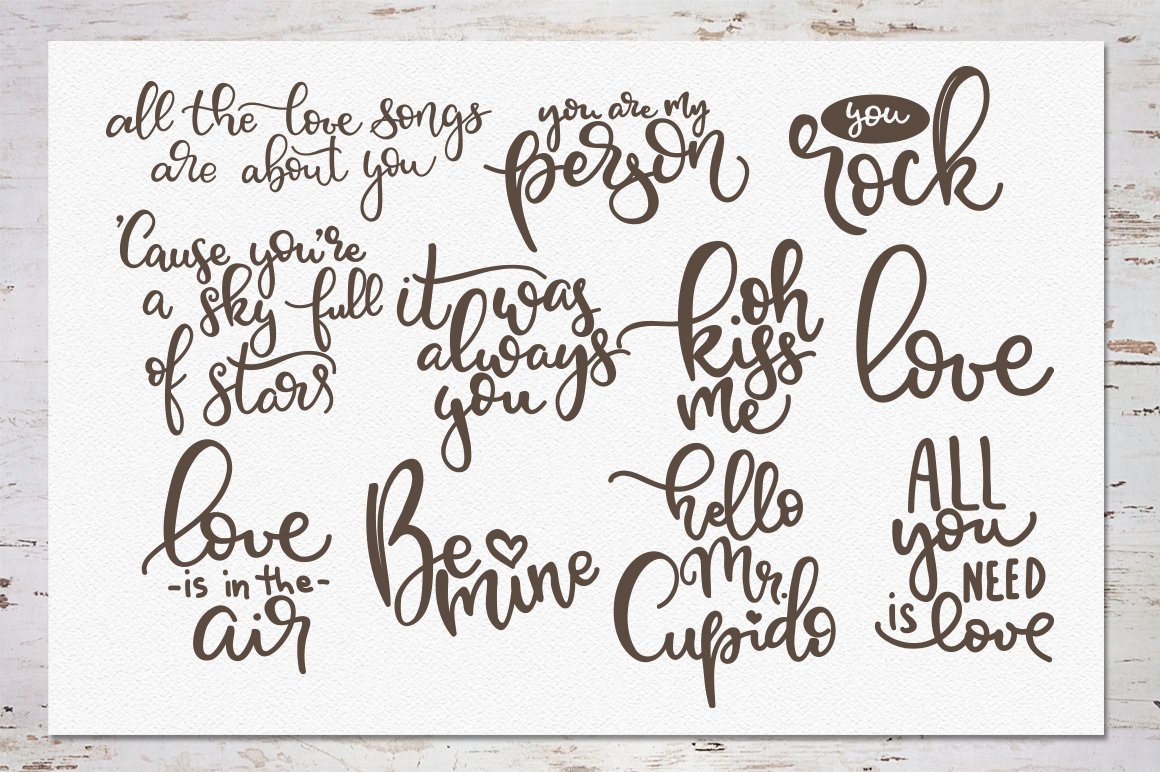 all the love songs
are about you
you are my
person
you
rock
'Cause you're
a sky full
of stars
it was
always
you
oh
kiss
me
love
love
-is in the-
air
Be
mine
hello
Mr.
Cupido
ALL
you
NEED
is love